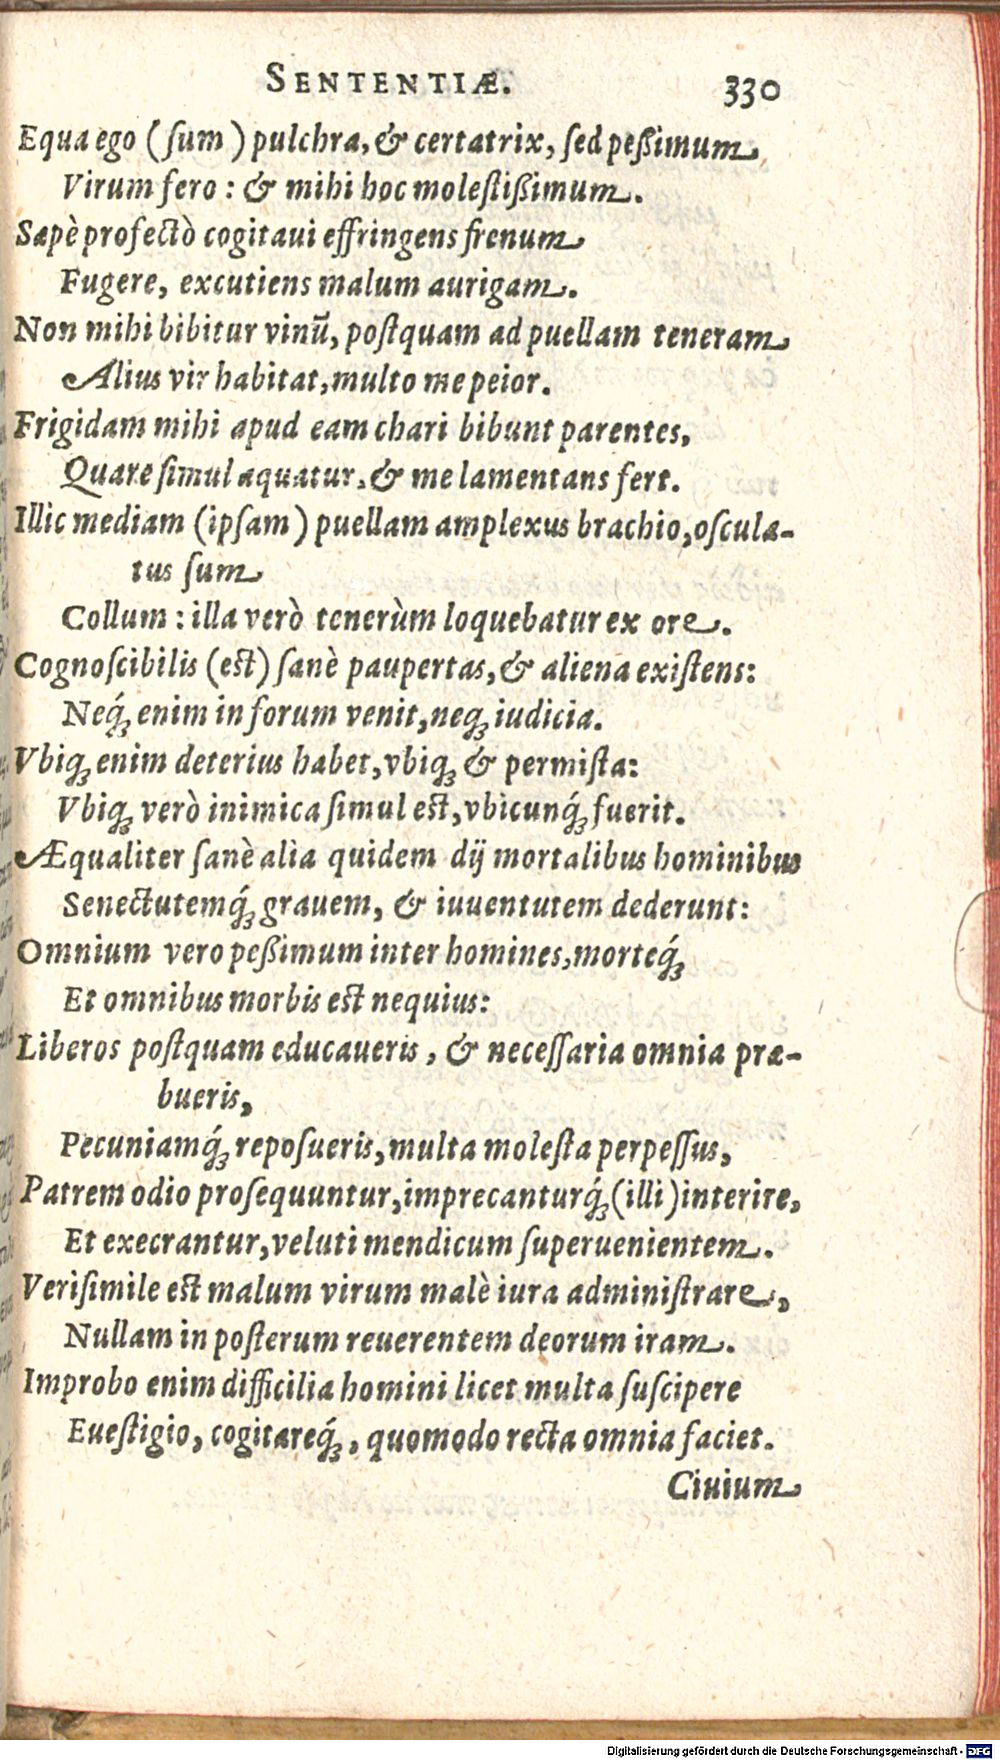 SENTENTIÆ. 330
Equa ego (ſum) pulchra, & certatrix, ſed peßimum
Virum fero: & mihi hoc moleſtißimum.
Sæpè profectò cogitaui effringens frenum
Fugere, excutiens malum aurigam.
Non mihi bibitur vinũ, poſtquam ad puellam teneram
Alius vir habitat, multo me peior.
Frigidam mihi apud eam chari bibunt parentes,
Quare ſimul aquatur, & me lamentans fert.
Illic mediam (ipſam) puellam amplexus brachio, oſcula-
tus ſum
Collum: illa verò tenerùm loquebatur ex ore.
Cognoſcibilis (est) ſanè paupertas, & aliena exiſtens:
Neq́ꝫ enim in forum venit, neqꝫ iudicia.
Vbiqꝫ enim deterius habet, vbiqꝫ & permiſta:
Vbiqꝫ verò inimica ſimul est, vbicunq́ꝫ fuerit.
Æqualiter ſanè alia quidem dij mortalibus hominibus
Senectutemq́ꝫ grauem, & iuuentutem dederunt:
Omnium vero peßimum inter homines, morteq́ꝫ
Et omnibus morbis est nequius:
Liberos poſtquam educaueris, & neceſſaria omnia præ-
bueris,
Pecuniamq́ꝫ repoſueris, multa moleſta perpeſſus,
Patrem odio proſequuntur, imprecanturq́ꝫ (illi) interire,
Et execrantur, veluti mendicum ſuperuenientem.
Veriſimile est malum virum malè iura adminiſtrare,
Nullam in poſterum reuerentem deorum iram.
Improbo enim difficilia homini licet multa ſuſcipere
Eueſtigio, cogitareq́ꝫ, quomodo recta omnia faciet.
Ciuium
Digitalisierung gefördert durch die Deutsche Forschungsgemeinschaft - DFG